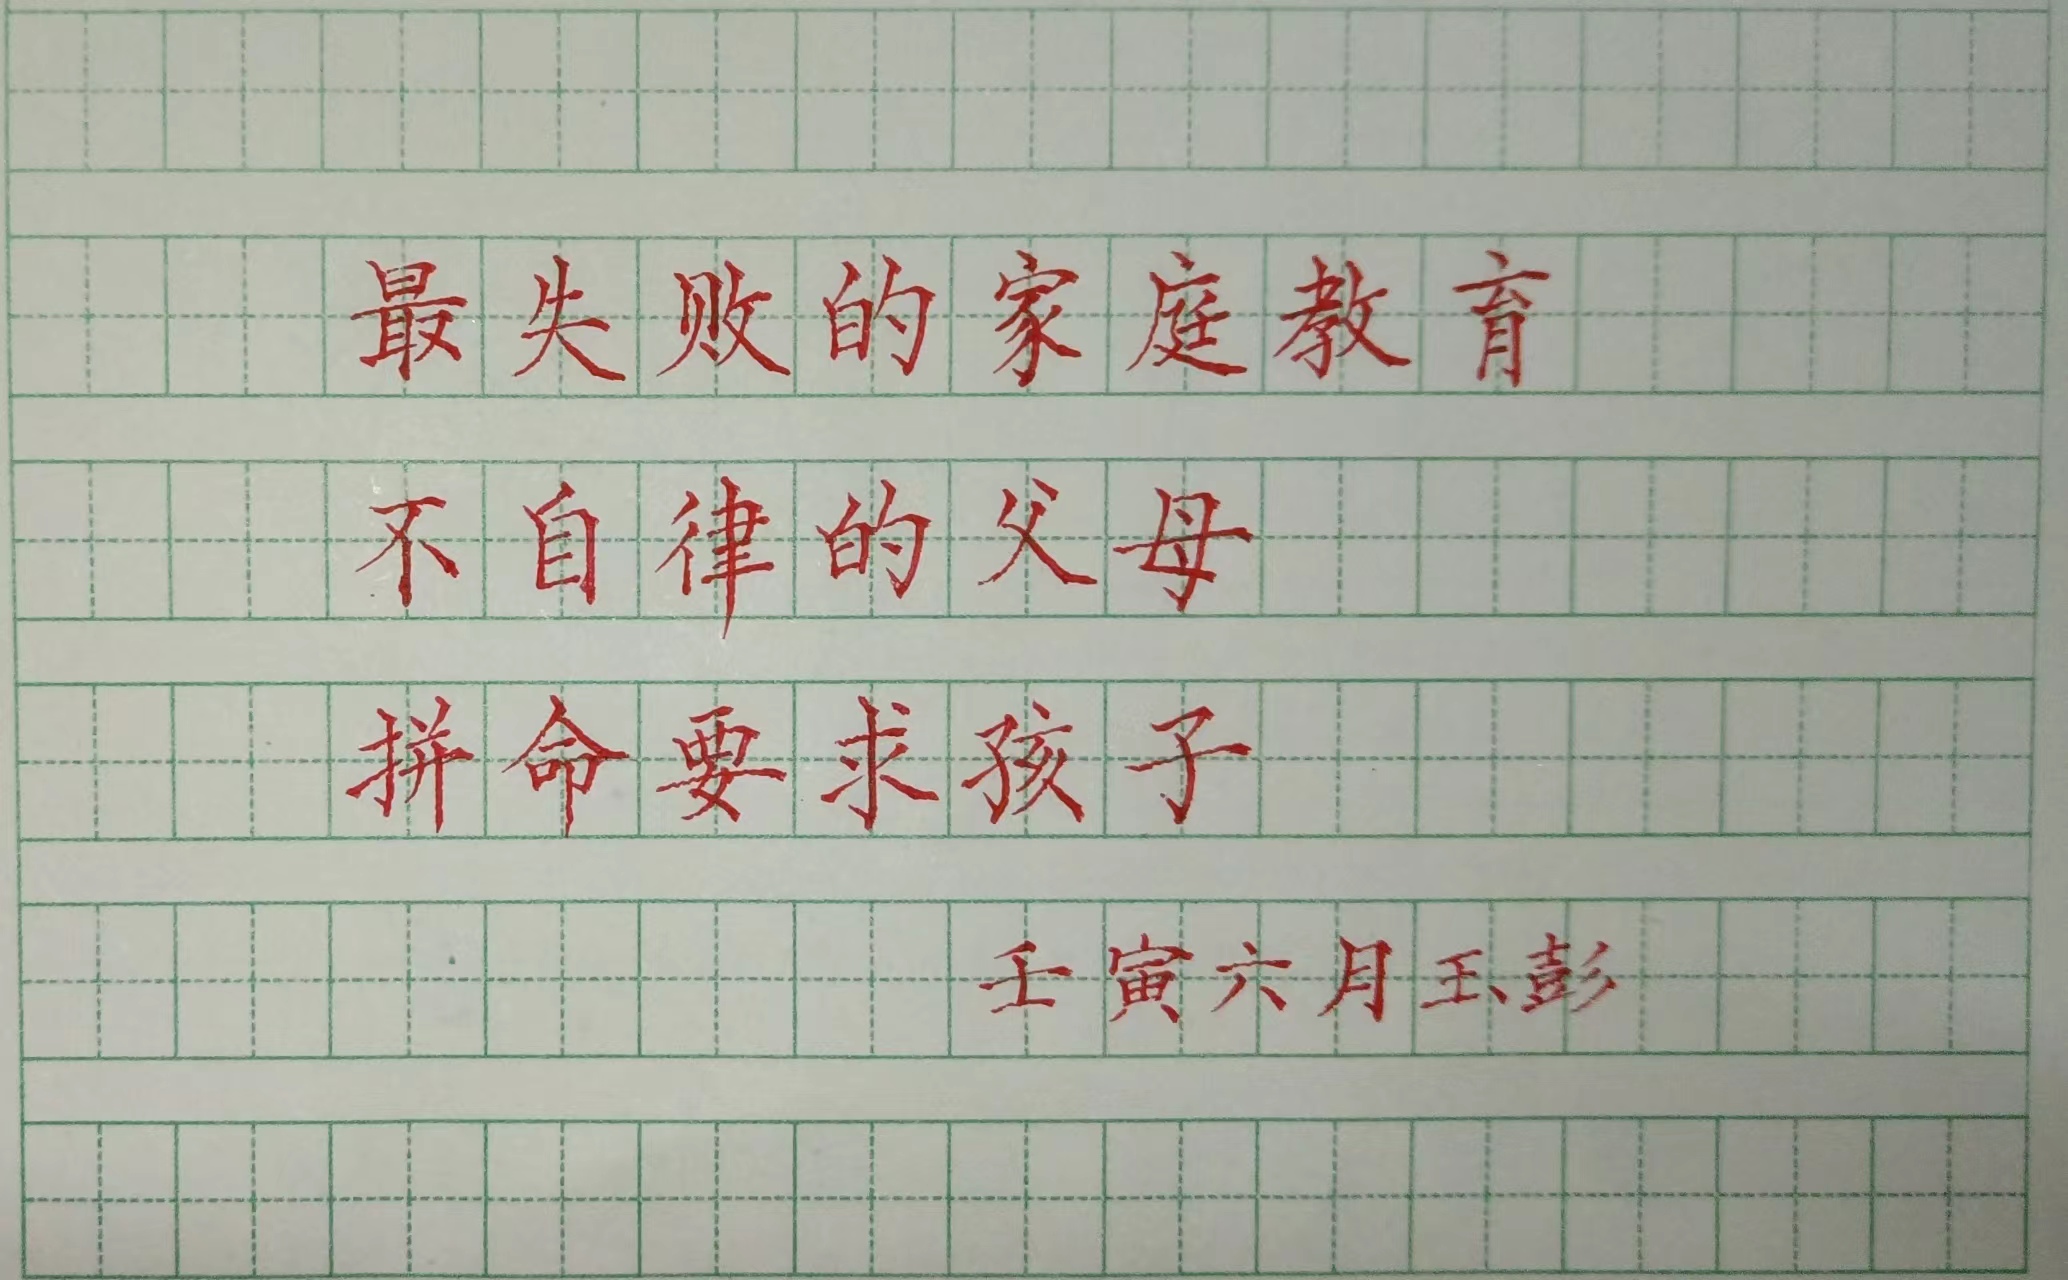 最失败的家庭教育
不自律的父母
拼命要求孩子
壬寅六月玉彭